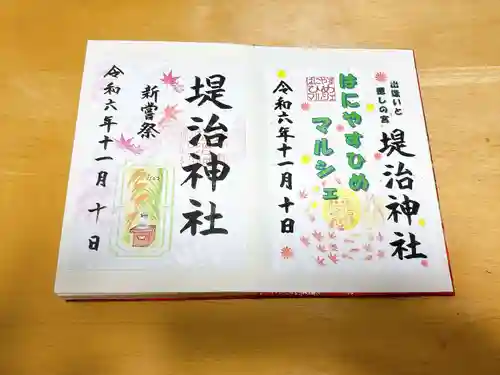 出逢いと
癒しの宮
堤治神社
はにやすひめ
マルシェ
はにやす
ひめ
マルシェ
令和六年十一月十日
堤治神社
新嘗祭
令和六年十一月十日